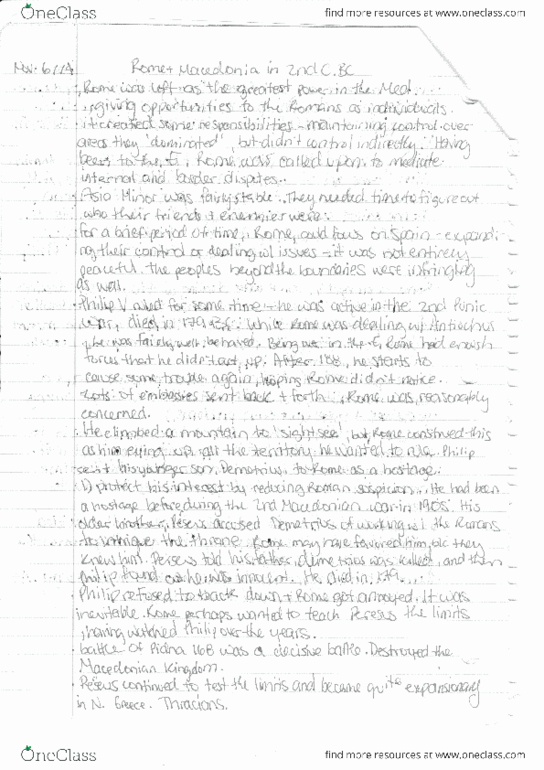 OneClass
find more resources at www.oneclass.com
Nov. 6/14
Rome + Macedonia in 2nd C. BC
Rome was left as the greatest power in the Med.
giving opportunities to the Romans as individuals.
it created some responsibilities - maintaining control over
areas they "dominated", but didn't control indirectly. Having
been to the E, Rome was called upon to mediate
internal and border disputes.
Asia Minor was fairly stable. They needed time to figure out
who their friends + enemies were.
for a brief period of time, Rome could focus on Spain - expandi-
ng their control or dealing w/ issues - it was not entirely
peaceful. the peoples beyond the boundaries were infringing
as well.
Philip V for some time - he was active in the 2nd Punic
war, died in 179 BC. While Rome was dealing w/ Antiochus
he was fairly well behaved. Being in the E, Rome had enough
forces that he didn't act up. After 188, he starts to
cause some trouble again, hoping Rome didn't notice.
Lots of embassies sent back + forth. Rome was reasonably
concerned.
He climbed a mountain to 'sightsee', but Rome construed this
as him eying up all the territory he wanted to Philip
sent his younger son, Demetrius, to Rome as a hostage.
1) protect his interest by reducing Roman suspicion. He had been
a hostage before during the 2nd Macedonian war in 190s. His
older brother, Perseus accused Demetrius of working w/ the Romans
to the throne. Rome may have favored him, b/c they
knew him. Perseus told his father, demetrius was killed, and then
Philip found out he was innocent. He died in 179.
Philip refused to back down + Rome got annoyed. It was
inevitable. Rome perhaps wanted to teach Perseus the limits
, having watched Philip over the years.
battle of Pidna 168 was a decisive battle. Destroyed the
Macedonian Kingdom.
Perseus continued to test the limits and became quite expansionary
in N. Greece. Thracians.
OneClass
find more resources at www.oneclass.com